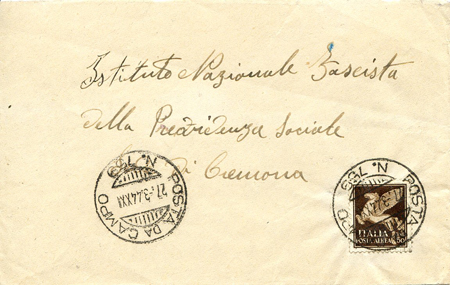 Istituto Nazionale Fascista
della Previdenza Sociale
di Cremona
POSTA DA CAMPO
N. 789
27.3.44.XXII
POSTA
N. 789
ITALIA
POSTA AEREA
50